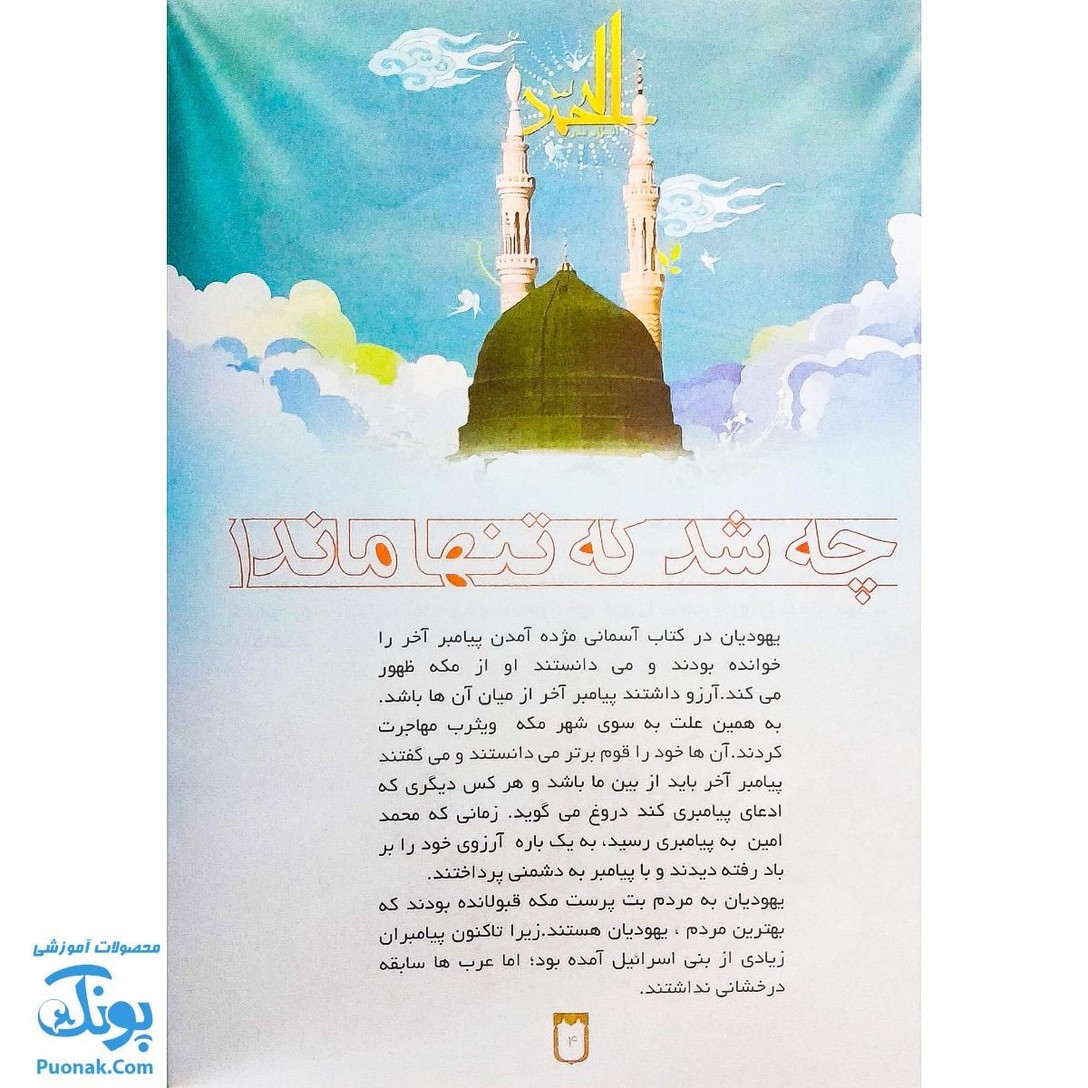 الحمد لله
چه شد که تنها ماند!
یهودیان در کتاب آسمانی مژده آمدن پیامبر آخر را
خوانده بودند و می دانستند او از مکه ظهور
می کند.آرزو داشتند پیامبر آخر از میان آن ها باشد.
به همین علت به سوی شهر مکه ویثرب مهاجرت
کردند.آن ها خود را قوم برتر می دانستند و می گفتند
پیامبر آخر باید از بین ما باشد و هر کس دیگری که
ادعای پیامبری کند دروغ می گوید. زمانی که محمد
امین به پیامبری رسید، به یک باره آرزوی خود را بر
باد رفته دیدند و با پیامبر به دشمنی پرداختند.
یهودیان به مردم بت پرست مکه قبولانده بودند که
بهترین مردم ، یهودیان هستند.زیرا تاکنون پیامبران
زیادی از بنی اسرائیل آمده بود؛ اما عرب ها سابقه
درخشانی نداشتند.
۱۴
محصولات آموزشی
پونک
Puonak.Com